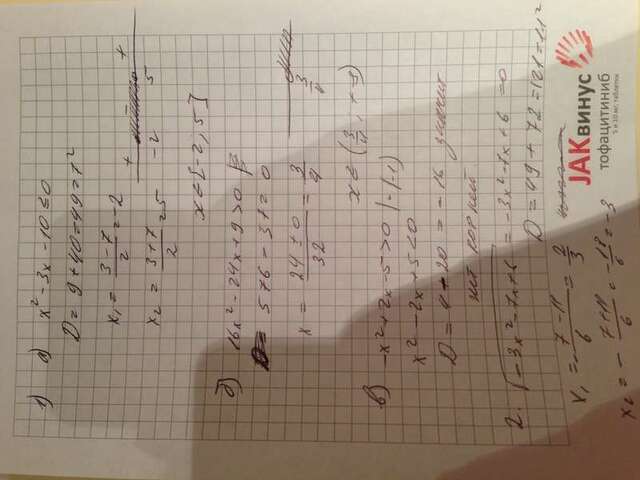 1) а) x² - 3x - 10 ≤ 0
D = 9 + 40 = 49 = 7²
x₁ = (3 - 7)/2 = -2
x₂ = (3 + 7)/2 = 5
+ - +
-2 5
x ∈ [-2, 5]
б) 16x² - 24x + 9 > 0
D = 576 - 57 = 0
x = (24 ± 0)/32 = 3/4
3/4
x ∈ (3/4, +∞)
в) -x² + 2x - 5 > 0 | · (-1)
x² - 2x + 5 < 0
D = 4 - 20 = -16 значит
нет корней
2. √-3x² - 7x + 6 = -3x² - 7x + 6 = 0
D = 49 + 72 = 121 = 11²
x₁ = -(7 - 11)/6 = 2/3
x₂ = -(7 + 11)/6 = -18/6 = -3
JAKвинус
тофацитиниб
5 и 10 мг таблетки